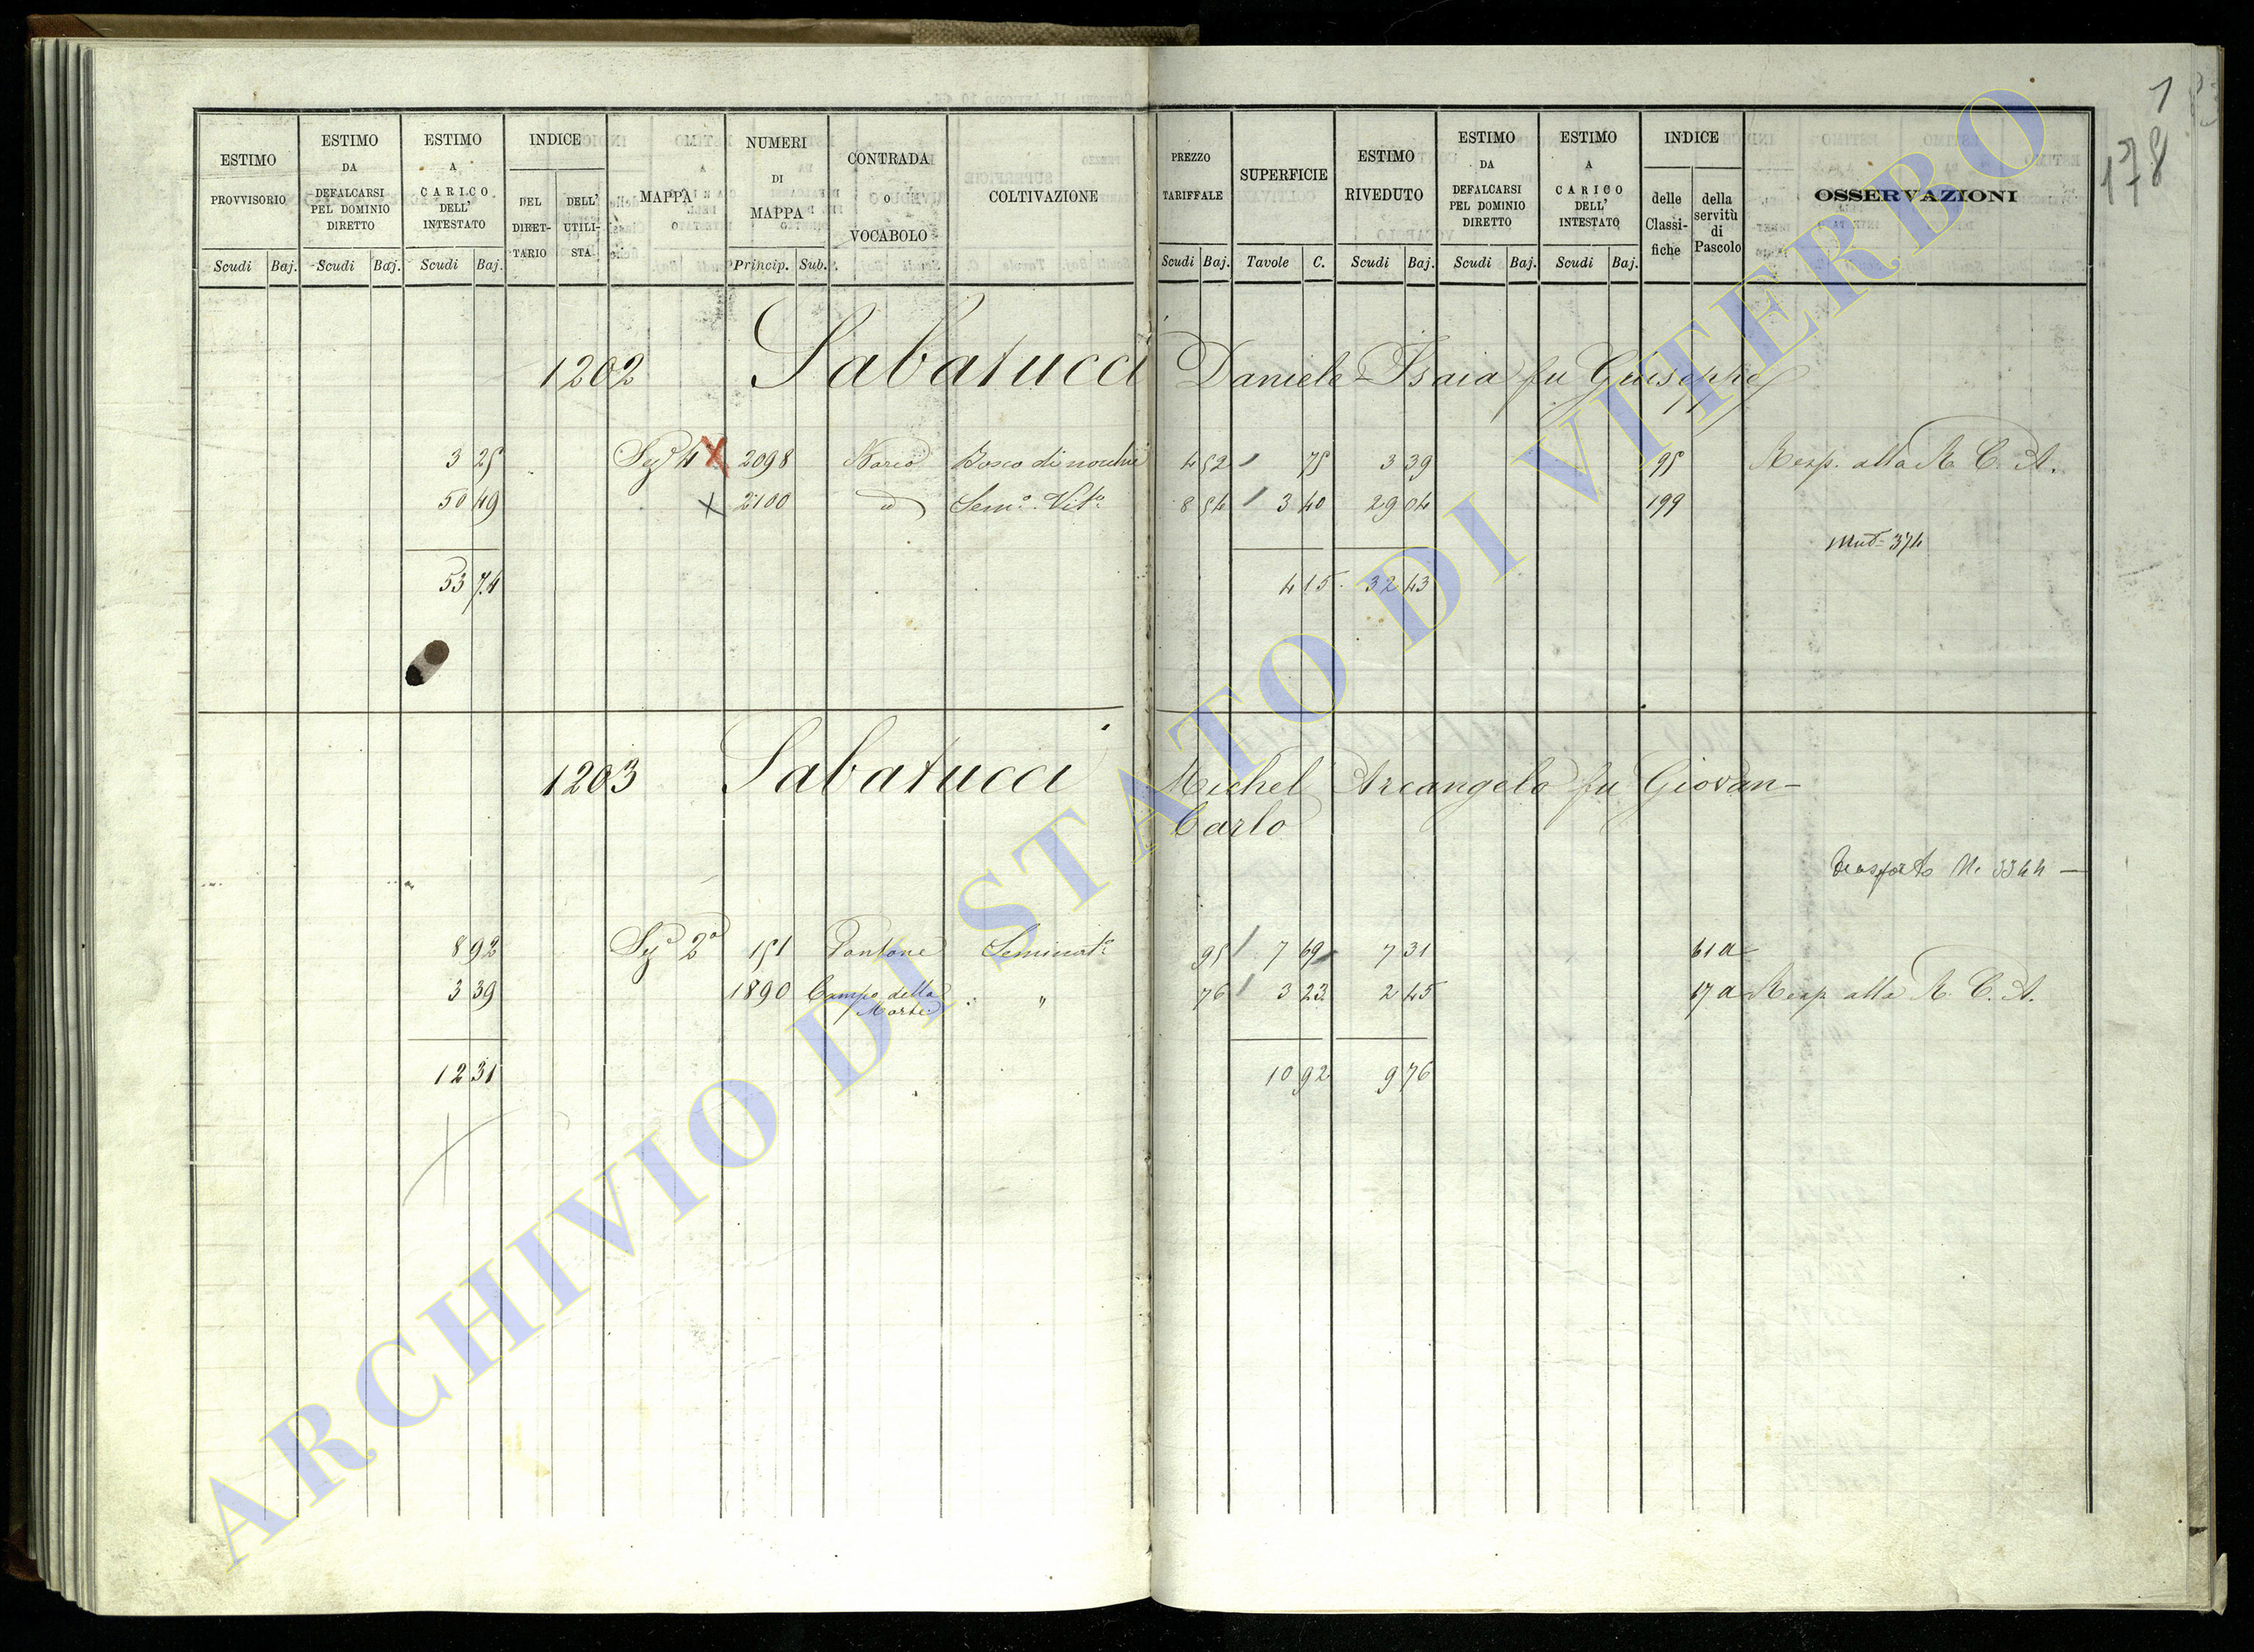 1
178
ESTIMO PROVVISORIO
Scudi Baj.
ESTIMO DA DEFALCARSI PEL DOMINIO DIRETTO
Scudi Baj.
ESTIMO A CARICO DELL' INTESTATO
Scudi Baj.
INDICE
DEL DIRET-TARIO
DELL' UTILI-STA
MAPPA
NUMERI DI MAPPA
Princip. Sub.
CONTRADA o VOCABOLO
COLTIVAZIONE
PREZZO TARIFFALE
Scudi Baj.
SUPERFICIE
Tavole C.
ESTIMO RIVEDUTO
Scudi Baj.
ESTIMO DA DEFALCARSI PEL DOMINIO DIRETTO
Scudi Baj.
ESTIMO A CARICO DELL' INTESTATO
Scudi Baj.
INDICE
delle Classi-fiche
della servitù di Pascolo
OSSERVAZIONI
1202 Sabatucci Daniele Isaia fu Giuseppe
3 25 Sez. 4 X 2098 Bosco di nocchie 4 52 75 3 39 95 Resp. alla R. C. A.
50 49 X 2100 d Sem.o Vit.o 8 54 3 40 29 04 199
Mut. 374
53 74 4 15 32 43
1203 Sabatucci Michel Arcangelo fu Giovan-
Carlo
trasporto N. 3344 —
8 92 Sez. 2a 151 Pantane Seminat.o 95 7 69 7 31 61 a
3 39 1890 Campo della Morte " 76 3 23 2 45 17 a Resp. alla R. C. A.
12 31 10 92 9 76
ARCHIVIO DI STATO DI VITERBO